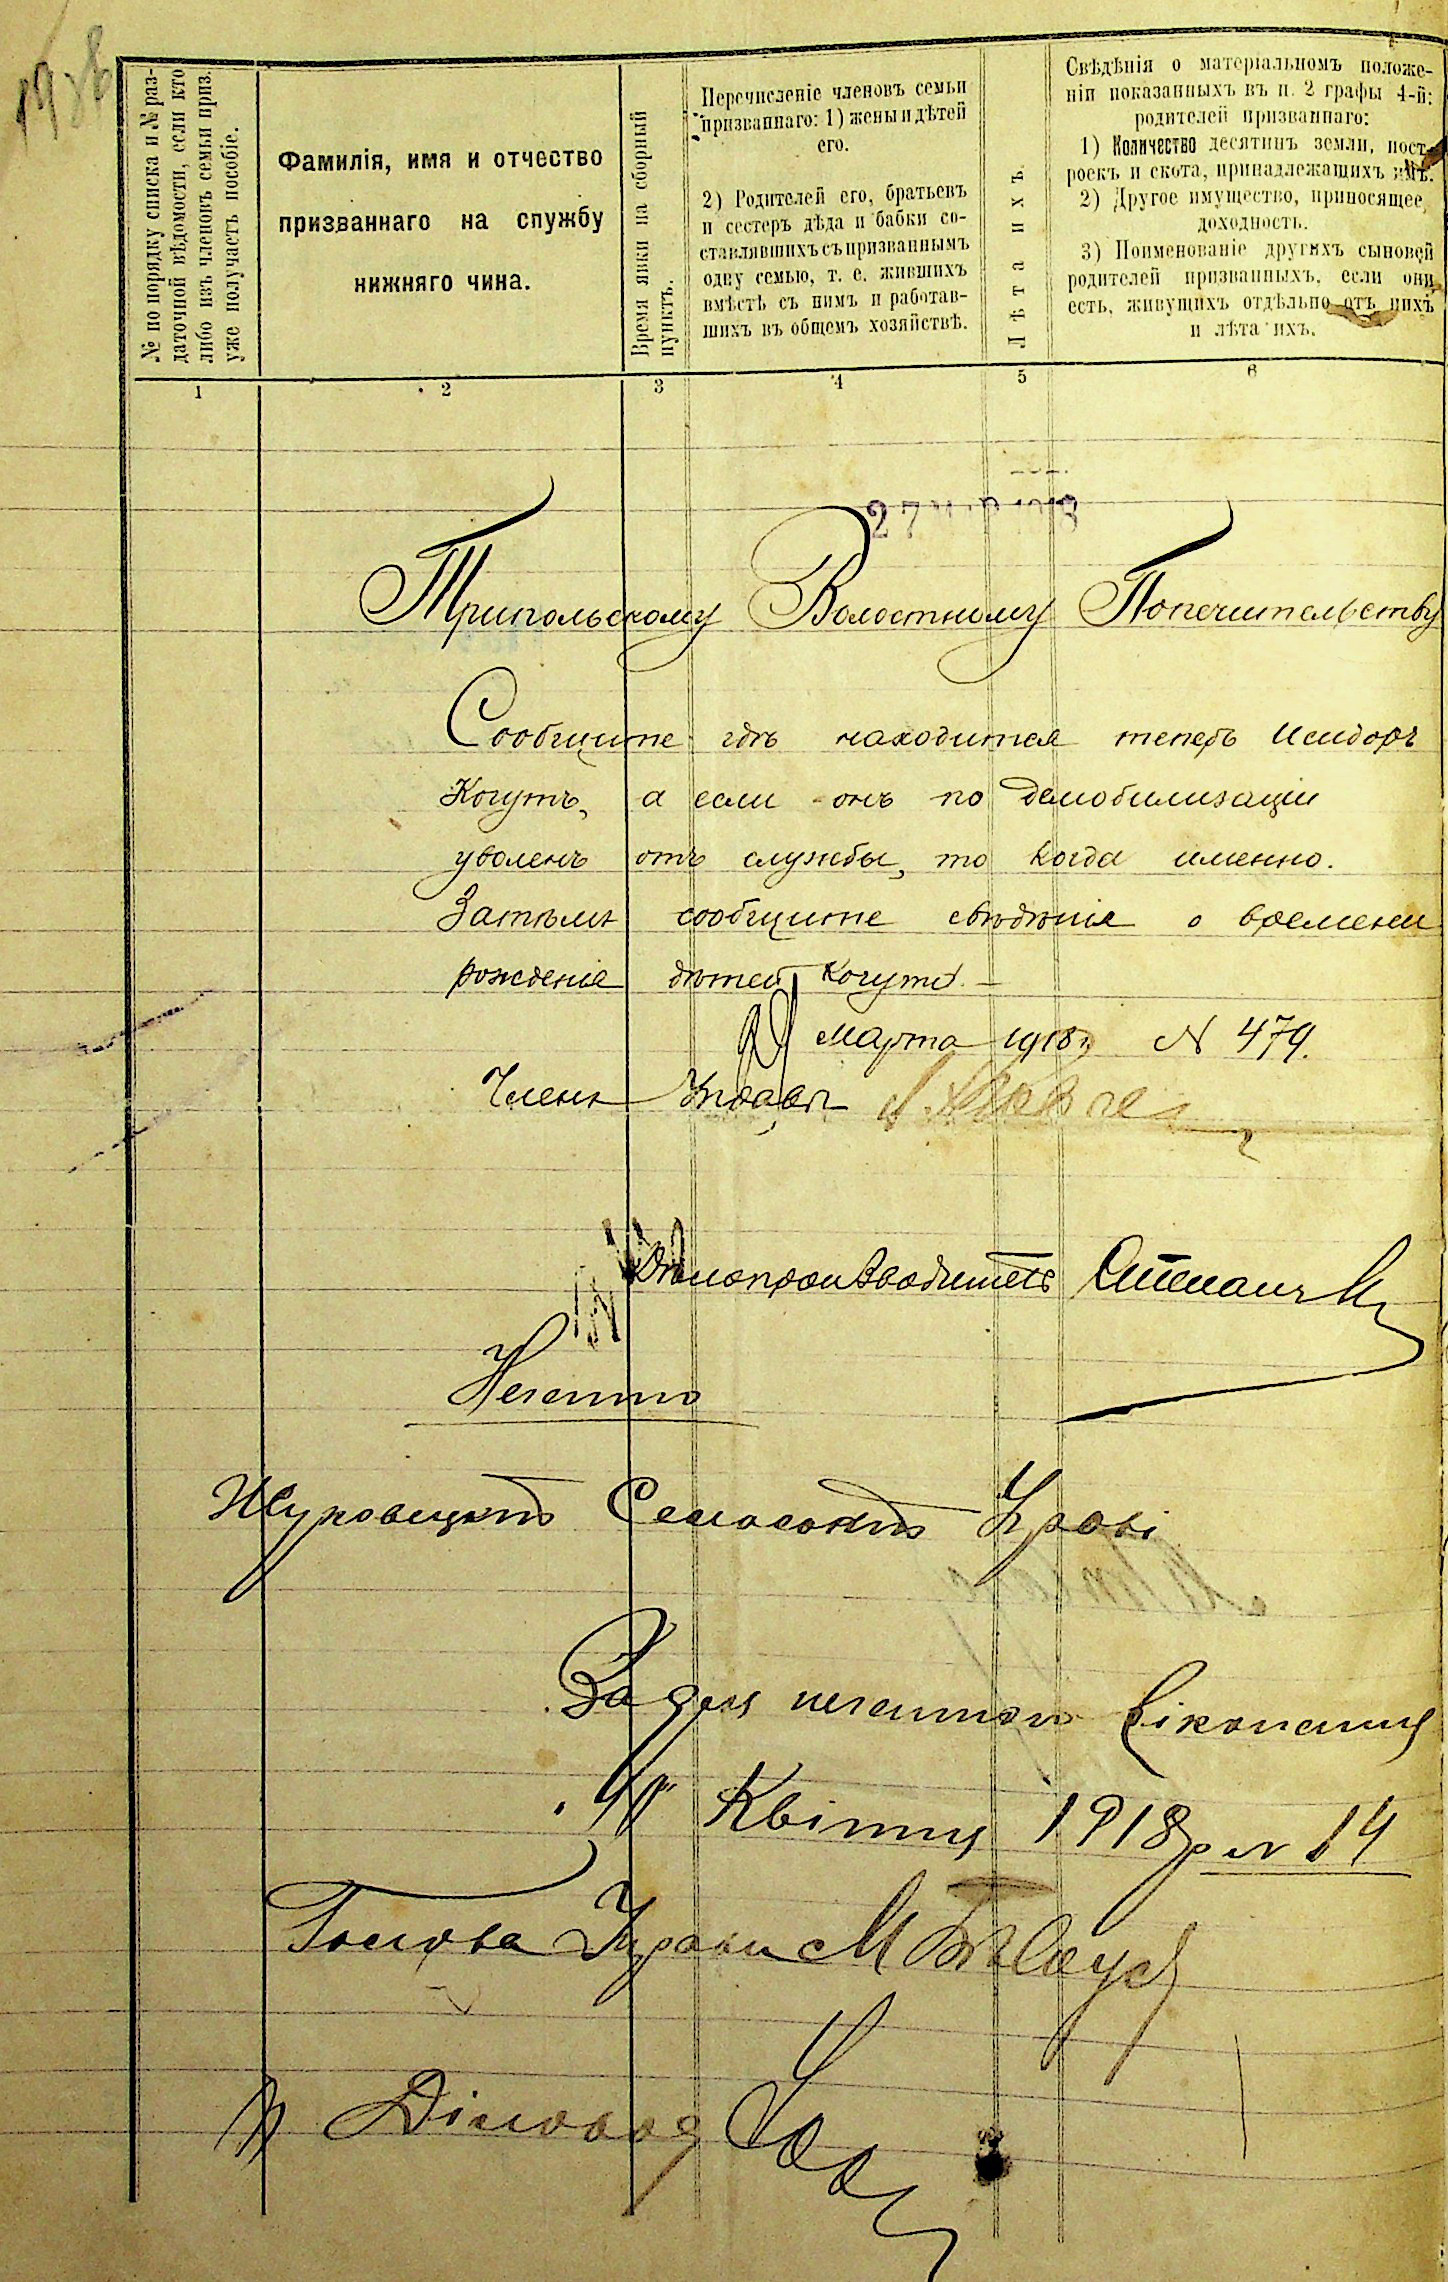 № по порядку списка и № раз-
даточной вѣдомости, если кто
либо изъ членовъ семьи приз.
уже получаетъ пособіе.
Фамилія, имя и отчество
призваннаго на службу
нижняго чина.
Время явки на сборный
пунктъ.
Перечисленіе членовъ семьи
призваннаго: 1) жены и дѣтей
его.
2) Родителей его, братьевъ
и сестеръ дѣда и бабки со-
ставлявшихъ съ призваннымъ
одну семью, т. е. жившихъ
вмѣстѣ съ нимъ и работав-
шихъ въ общемъ хозяйствѣ.
Лѣта ихъ.
Свѣдѣнія о матеріальномъ положе-
ніи показанныхъ въ п. 2 графы 4-й:
родителей призваннаго:
1) Количество десятинъ земли, пост-
роекъ и скота, принадлежащихъ имъ.
2) Другое имущество, приносящее
доходность.
3) Поименованіе другихъ сыновей
родителей призванныхъ, если они
есть, живущихъ отдѣльно отъ нихъ
и лѣта ихъ.
1 2 3 4 5 6
27 МАР 1918
Трипольскому Волостному Попечительству
Сообщите гдѣ находится теперь Исидоръ
Когутъ, а если онъ по демобилизаціи
уволенъ отъ службы, то когда именно.
Затѣмъ сообщите свѣдѣнія о времени
рожденія дѣтей Когута. —
марта 1918 г. № 479.
Членъ Управы
Дѣлопроизводитель
Негайно
Жуковецкій Сельській Управі
За для негайного виконання
Квітня 1918 р № 14
Голова Управи М Бѣлоус
Діловод